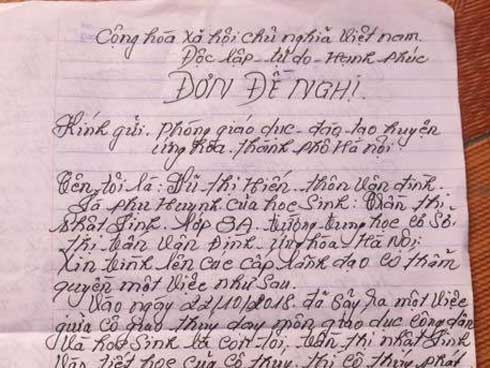 Cộng hòa xã hội chủ nghĩa Việt nam
Độc lập - tự do - Hạnh phúc
ĐƠN ĐỀ NGHỊ.
Kính gửi. Phòng giáo dục - đào tạo huyện
ứng hòa. thành phố Hà nội
Tên tôi là: Lữ thị Hiến. thôn Vân đình.
Là phụ Huynh của học Sinh: Trần thị
nhất Linh. lớp 8A. trường trung học cơ Sở
thị trấn Vân Đình. ứng hòa Hà Nội.
Xin trình lên các cấp lãnh đạo có thẩm
quyền một việc như Sau.
Vào ngày 22/10/2018. đã Sảy ra một việc
giữa cô giáo thúy dạy môn giáo dục công dân
và học Sinh là con tôi. trần thị nhất Linh
Vào tiết học của cô thúy. thì cô thúy phát